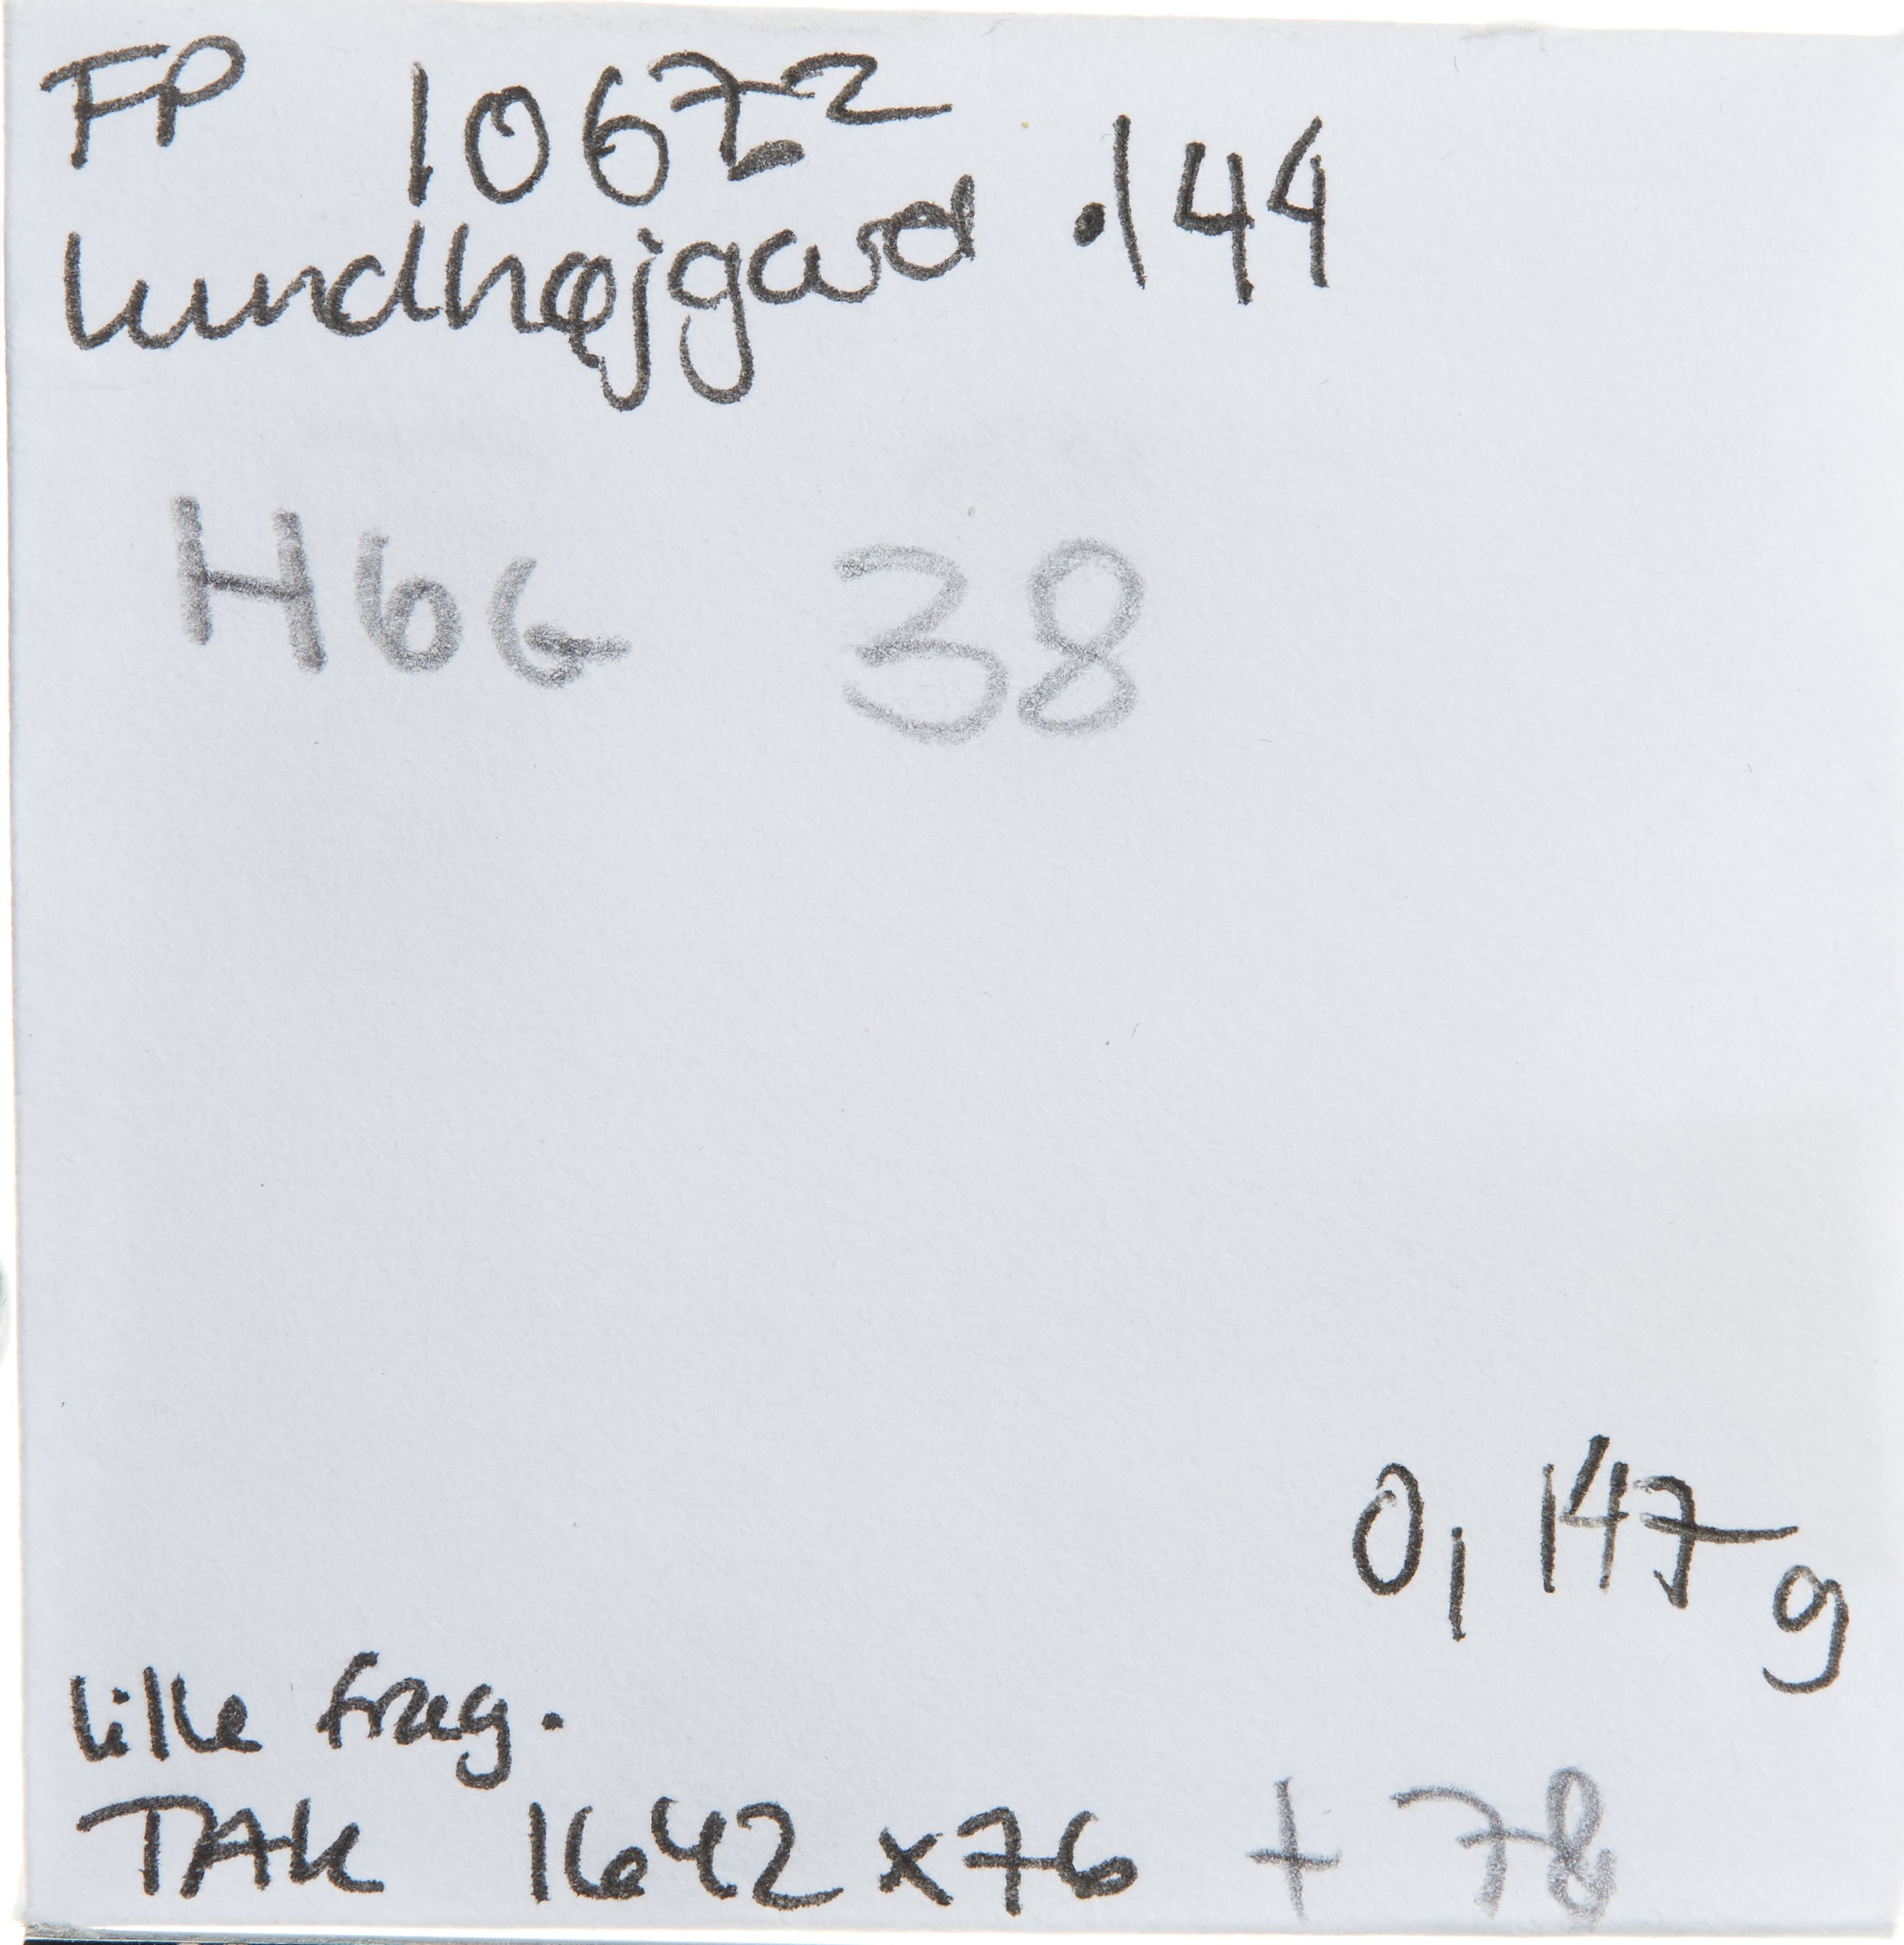 FP 10672 .144
Lundhøjgard
HbG 38
0,147 g
lille frag.
TAK 1642 x76 + 78